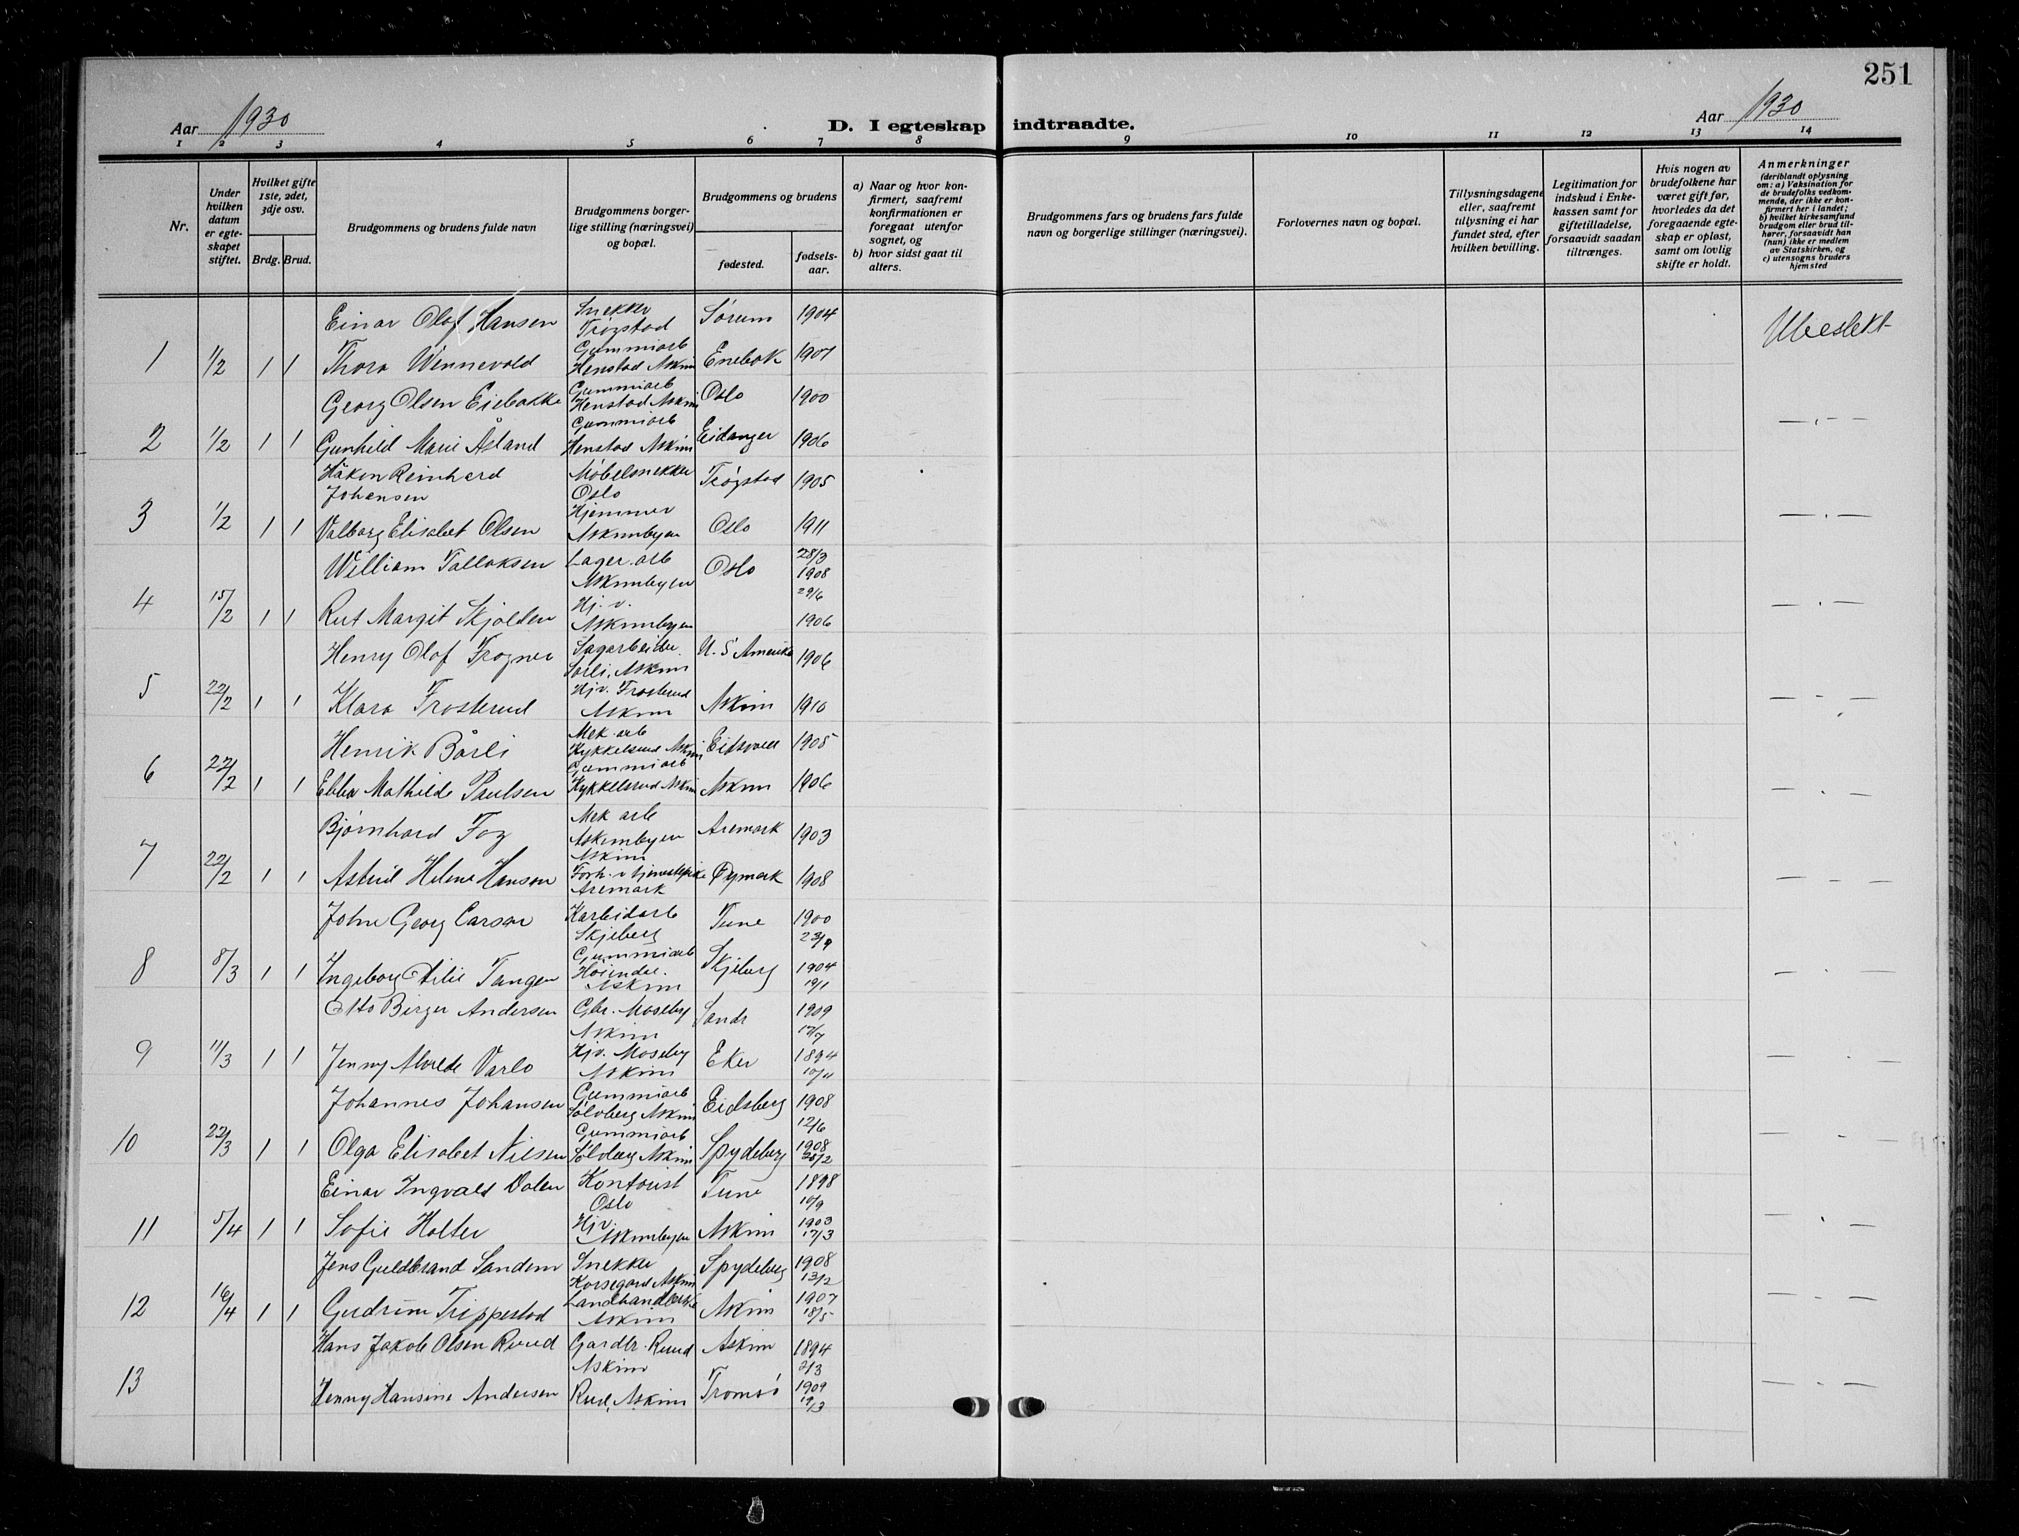 251
Aar 1930
D. I egteskap indtraadte.
Aar 1930
1 2 3 4 5 6 7 8 9 10 11 12 13 14
Nr.
Under hvilken datum er egteskapet stiftet.
Hvilket gifte 1ste, 2det, 3dje osv.
Brdg. Brud.
Brudgommens og brudens fulde navn
Brudgommens borgerlige stilling (næringsvei) og bopæl.
Brudgommens og brudens
fødested.
fødselsaar.
a) Naar og hvor konfirmert, saafremt konfirmationen er foregaat utenfor sognet, og
b) hvor sidst gaat til alters.
Brudgommens fars og brudens fars fulde navn og borgerlige stillinger (næringsvei).
Forlovernes navn og bopæl.
Tillysningsdagene eller, saafremt tillysning ei har fundet sted, efter hvilken bevilling.
Legitimation for indskud i Enkekassen samt for giftetilladelse, forsaavidt saadan tiltrænges.
Hvis nogen av brudefolkene har været gift før, hvorledes da det foregaaende egteskap er opløst, samt om lovlig skifte er holdt.
Anmerkninger (deriblandt oplysning om: a) Vaksination for de brudefolks vedkommende, der ikke er konfirmert her i landet; b) hvilket kirkesamfund brudgom eller brud tilhører, forsaavidt han (hun) ikke er medlem av Statskirken, og c) utensogns bruders hjemsted
Einar Olaf Hansen Snekker Trøgstad Sørum 1904 Ubeslekt
1 1/2 1 1 Thora Winnevold Gummiarb Henstad Askim Enebak 1907
Georg Olsen Eiebakke Gummiarb Henstad Askim Oslo 1900
2 1/2 1 1 Gunhild Marie Åsland Gummiarb Henstad Askim Eidanger 1906 — . —
Håkon Reinhard Johansen Møbelsnekker Oslo Trøgstad 1905
3 1/2 1 1 Valborg Elisabet Olsen Hjemmev Askimbyen Oslo 1911 — . —
William Tallaksen Lager.arb Askimbyen Oslo 28/3 1908
4 15/2 1 1 Rut Margit Skjolden Hj.v. Askimbyen 29/6 1906 — . —
Henry Olaf Frogner Sagarbeider Sørli, Askim U. S Amerika 1906
5 22/2 1 1 Klara Frosterud Hjv. Frosterud Askim Askim 1910 — - —
Henrik Bårli Mek. arb Kykkelsrud Askim Eidsvoll 1905
6 22/2 1 1 Ebba Mathilde Paulsen Gummiarb Kykkelsrud Askim Askim 1906 — . —
Bjørnhard Fog Mek arb Askimbyen Askim Aremark 1903
7 22/2 1 1 Astrid Helene Hansen Aremark Øymark 1908 — . —
John Georg Carsar Karbidarb Skjeberg Tune 1900 23/9
8 8/3 1 1 Ingeborg Tangen Gummiarb Askim Skjeberg 1904 19/1 — . —
Otto Birger Andersen Gbr. Moseby Askim Sandr 1909 17/7
9 11/3 1 1 Jenny Alvilde Varlo Hjv. Moseby Askim Eker 1894 10/4 — . —
Johannes Johansen Gummiarb Sølvberg Askim Eidsberg 1908 12/6
10 22/3 1 1 Olga Elisabet Nilsen Gummiarb Sølvberg Askim Spydeberg 1908 28/2 — . —
Einar Ingvald Dalen Kontorist Oslo Tune 1898 10/9
11 5/4 1 1 Sofie Holter Hjv. Askimbyen Askim 1903 17/3 — . —
Jens Guldbrand Sandem Snekker Korsegard Askim Spydeberg 1908 13/2
12 16/4 1 1 Gudrun Trippestad Askim Askim 1907 18/5 — . —
Hans Jakob Olsen Ruud Gardbr. Ruud Askim Askim 1894 2/3
13 Henny Hansine Andersen Rud, Askim Tromsø 1909 19/3 — . —